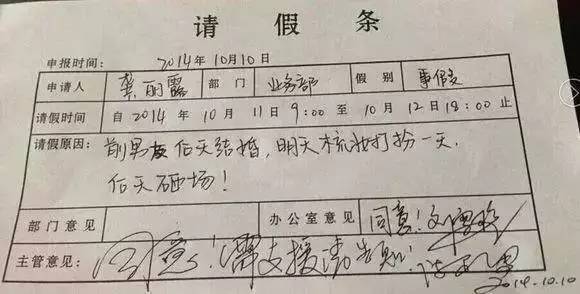 请假条
申报时间: 2014年10月10日
申请人 龚丽霞 部门 业务部 假别 事假
请假时间 自2014年10月11日9:00至10月12日18:00止
请假原因: 前男友后天结婚,明天梳妆打扮一天.
后天砸场!
部门意见 办公室意见 同意!
主管意见: 同意!需支援请告知!
2014.10.10